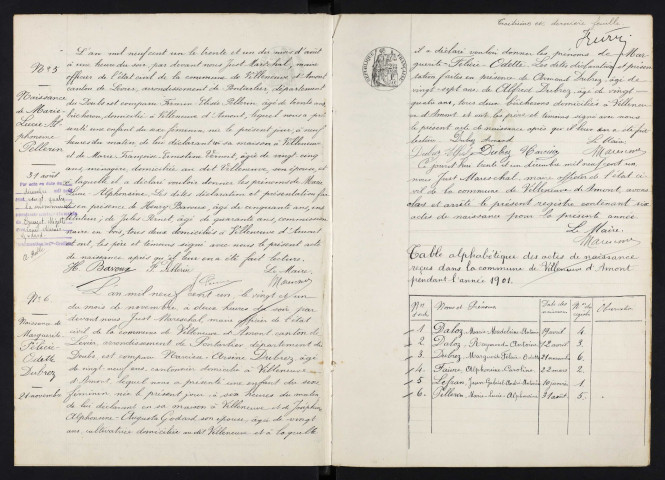 N° 5
Naissance
de Marie
Lucie Al-
phonsine
Pellerin
31 août
L'an mil neuf cent un le trente et un du mois d'août
à une heure du soir, par devant nous Just Maréchal, maire
officier de l'état civil de la commune de Villeneuve d'Amont
canton de Levier, arrondissement de Pontarlier, département
du Doubs est comparu Pellerin, âgé de trente ans
bûcheron, domicilié à Villeneuve d'Amont, lequel nous a pré-
senté une enfant du sexe féminin, née le présent jour, à neuf
heures du matin, de lui déclarant en sa maison à Villeneuve
et de Marie Françoise Ernestine Vernet, âgée de vingt cinq
ans, ménagère, domiciliée au dit Villeneuve, son épouse, et
laquelle il a déclaré vouloir donner les prénoms de Marie
Alphonsine. Les dites déclaration et présentation faites
en présence de Henry Bavoux, âgé de cinquante ans,
et de Jules âgé de quarante ans, commission-
naire en bois, tous deux domiciliés à Villeneuve d'Amont
et ont, les père et témoins signé avec nous le présent acte
de naissance après qu'il leur en a été fait lecture.
H. Bavoux P. Pellerin Le Maire,
Maréchal
N° 6.
Naissance de
Marguerite
Félicie
Odette
Dubrez
21 novembre
L'an mil neuf cent un, le vingt et un
du mois de novembre à deux heures du soir par
devant nous Just Maréchal maire officier de l'état
civil de la commune de Villeneuve d'Amont canton de
Levier, arrondissement de Pontarlier département du
Doubs est comparu Narcisse Arsène Dubrez, âgé
de vingt neuf ans, cantonnier domicilié à Villeneuve
d'Amont, lequel nous a présenté une enfant du sexe
féminin née le présent jour à six heures du matin
de lui déclarant en sa maison à Villeneuve et de Josephine
Alphonsine Augusta Godard son épouse, âgée de vingt
ans, cultivatrice domiciliée au dit Villeneuve et à laquelle
dernière feuille
il a déclaré vouloir donner les prénoms de Mar-
guerite Félicie Odette. Les dites déclaration et présen-
tation faites en présence de Armand Dubrez, âgé de
vingt-sept ans, de Alfred Dubrez, âgé de vingt-
quatre ans, tous deux bûcherons domiciliés à Villeneuve
d'Amont et ont les père et témoins signé avec nous
le présent acte de naissance après que il leur en a été fait
lecture. Dubrez Armand Le Maire,
Dubrez Alfred Dubrez Narcisse Maréchal
Ce jourd'hui trente et un décembre mil neuf cent un
nous Just Maréchal, maire officier de l'état ci-
vil de la commune de Villeneuve d'Amont, avons
clos et arrêté le présent registre contenant six
actes de naissance pour la présente année.
Le Maire,
Maréchal
Table alphabétique des actes de naissance
reçus dans la commune de Villeneuve d'Amont
pendant l'année 1901.
N° d'ordre Noms et Prénoms Date des naissances N° du regist. Observations
1 Daloz Marie Madeleine 19 avril 4
2 Daloz Raymond Antoine 12 avril 3.
3 Dubrez Marguerite Félicie Odette 21 novembre 6.
4 Faivre Alphonsine Caroline 22 mars 2.
5 Lefranc Jean Gabriel André 10 janvier 1
6. Pellerin Marie Lucie Alphonsine 31 août 5.